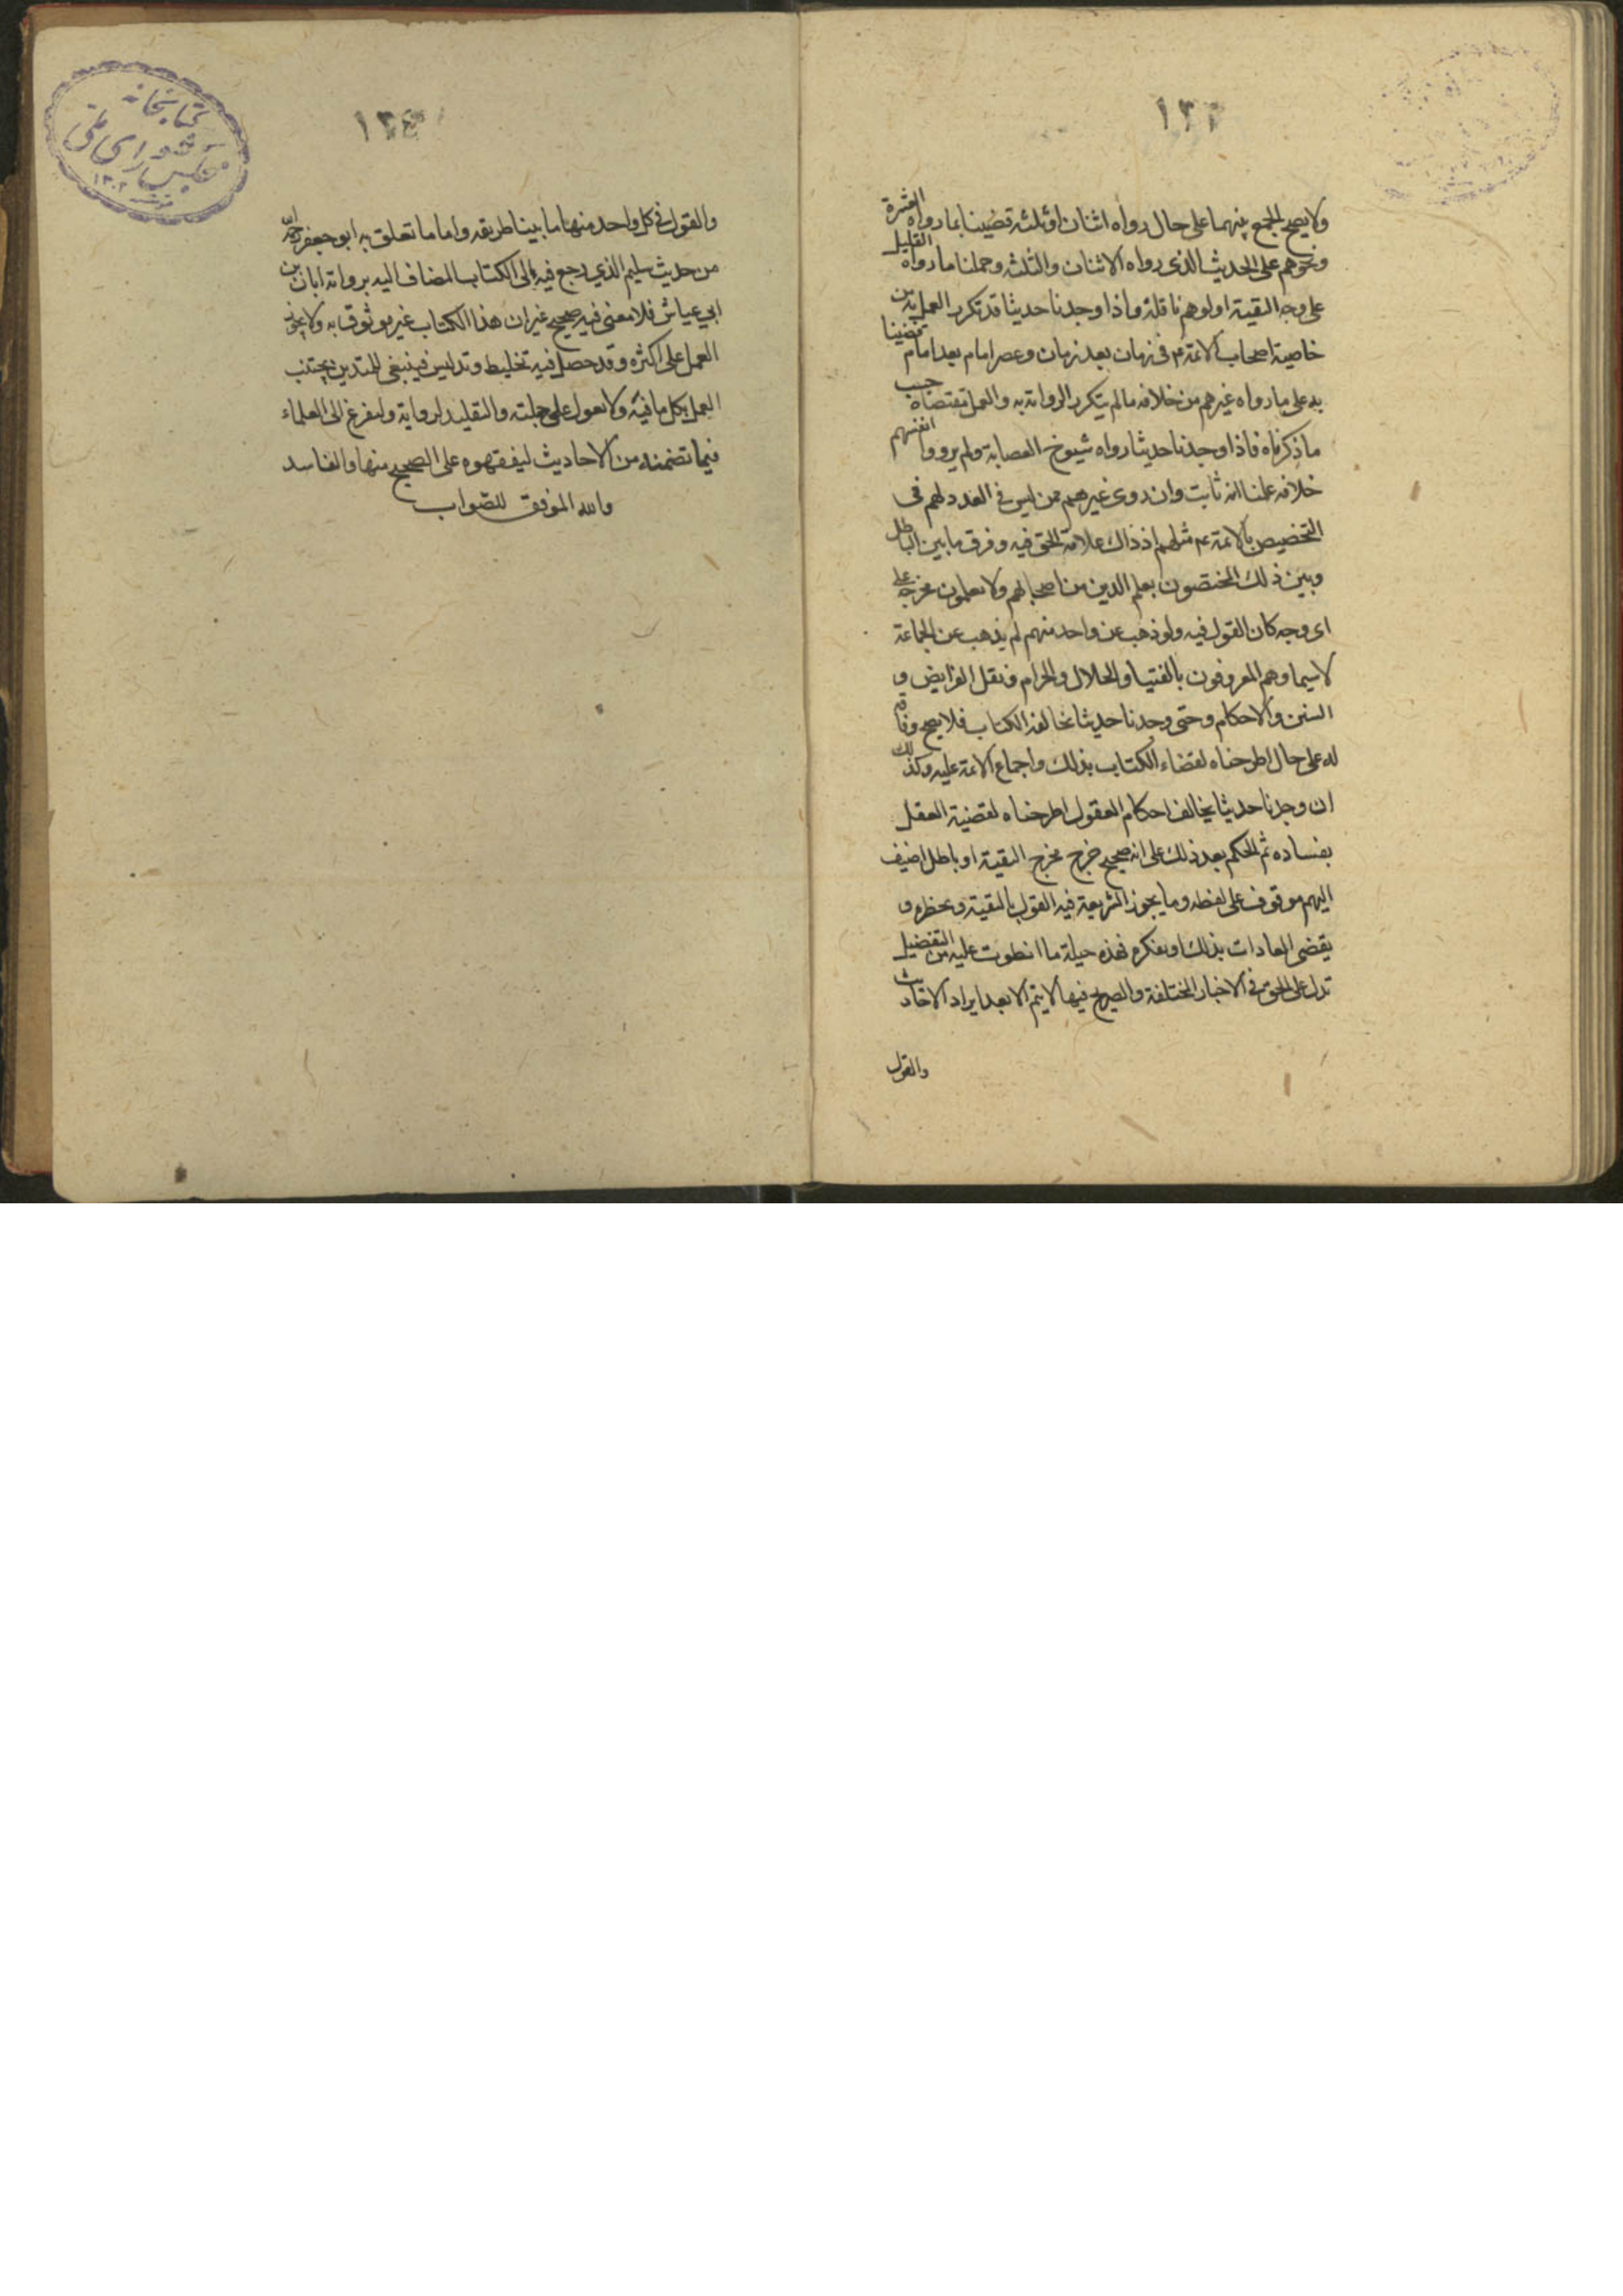 ١٣٣
ولا يصح الجمع بينهما على حال رواه اثنان او ثلثه قضينا بما رواه العشرة
ونحوهم على الحديث الذى رواه الاثنان والثلثه وحملنا ما رواه القليل
على وجه التقية او لوهم ناقلة واذا وجدنا حديثا قد تكرر العمل به من
خاصية اصحاب الائمة م فى زمان بعد زمان وعصر امام بعد امام قضينا
به على ما رواه غيرهم من خلافه ما لم يتكرر الرواية به والعمل بمقتضاه حسب
ما ذكرناه فاذا وجدنا حديثا رواه شيوخ العصابة ولم يرووا انفسهم
خلافه علمنا انه ثابت وان روى غيرهم ممن ليس فى العدد لهم فى
التخصيص بالائمة عم مثلهم اذ ذاك علامة الحق فيه وفرق ما بين الباطل
وبين ذلك المختصون بعلم الدين من اصحابهم ولا يعلمون مخرجه على
اى وجه كان القول فيه ولو ذهب عن واحد منهم لم يذهب عن الجماعة
لاسيما وهم المعروفون بالفتيا والحلال والحرام ونقل الفرايض و
السنن والاحكام وحتى وجدنا حديثا يخالفه الكتاب فلا يصح وفاقه
له على حال اطرحناه لقضاء الكتاب بذلك واجماع الائمة عليه وكذلك
ان وجدنا حديثا يخالف احكام العقول اطرحناه لقضية العقل
بفساده ثم الحكم بعد ذلك على انه صحيح خرج مخرج التقية او باطل اضيف
اليهم موقوف على لفظه وما يجوز الشريعة فيه القول بالتقية ويحظره و
يقضى العادات بذلك او ينكره فهذه حيلة ما انطوت عليه من التفضيل
تدل على الحق فى الاخبار المختلفة والصريح فيها لا يتم الا بعد ايراد الاحاديث
والقول
كتابخانه
مجلس شوراى ملى
١٣٠٢
١٣٤
والقول فى كل واحد منها ما بينا طريقه واما ما تعلق به ابو جعفر رحمه الله
من حديث سليم الذي رجع فيه الى الكتاب المضاف اليه برواية ابان بن
ابي عياش فلا معنى فيه صحيح غير ان هذا الكتاب غير موثوق به ولا يجوز
العمل على اكثره وقد حصل فيه تخليط وتدليس فينبغى للمتدين يجتنب
العمل بكل ما فيه ولا يعول على جملته والتقليد لرواية وليفزع الى العلماء
فيما تضمنه من الاحاديث ليفقهوه على الصحيح منها والفاسد
والله الموفق للصواب